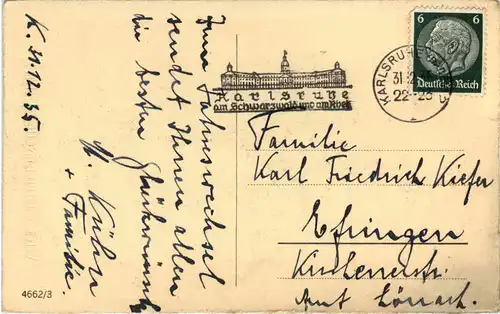 K. 31.12.35.
Zum Jahreswechsel
sendet Ihnen allen
die besten Glückwünsche
H. Kühn
+ Familie.
4662/3
Karlsruhe
am Schwarzwald und am Rhein
KARLSRUHE
31.12
22-23
6 6
Deutsches Reich
Familie
Karl Friedrich Kiefer
Efringen
Kirchenerstr.
Amt Lörrach.